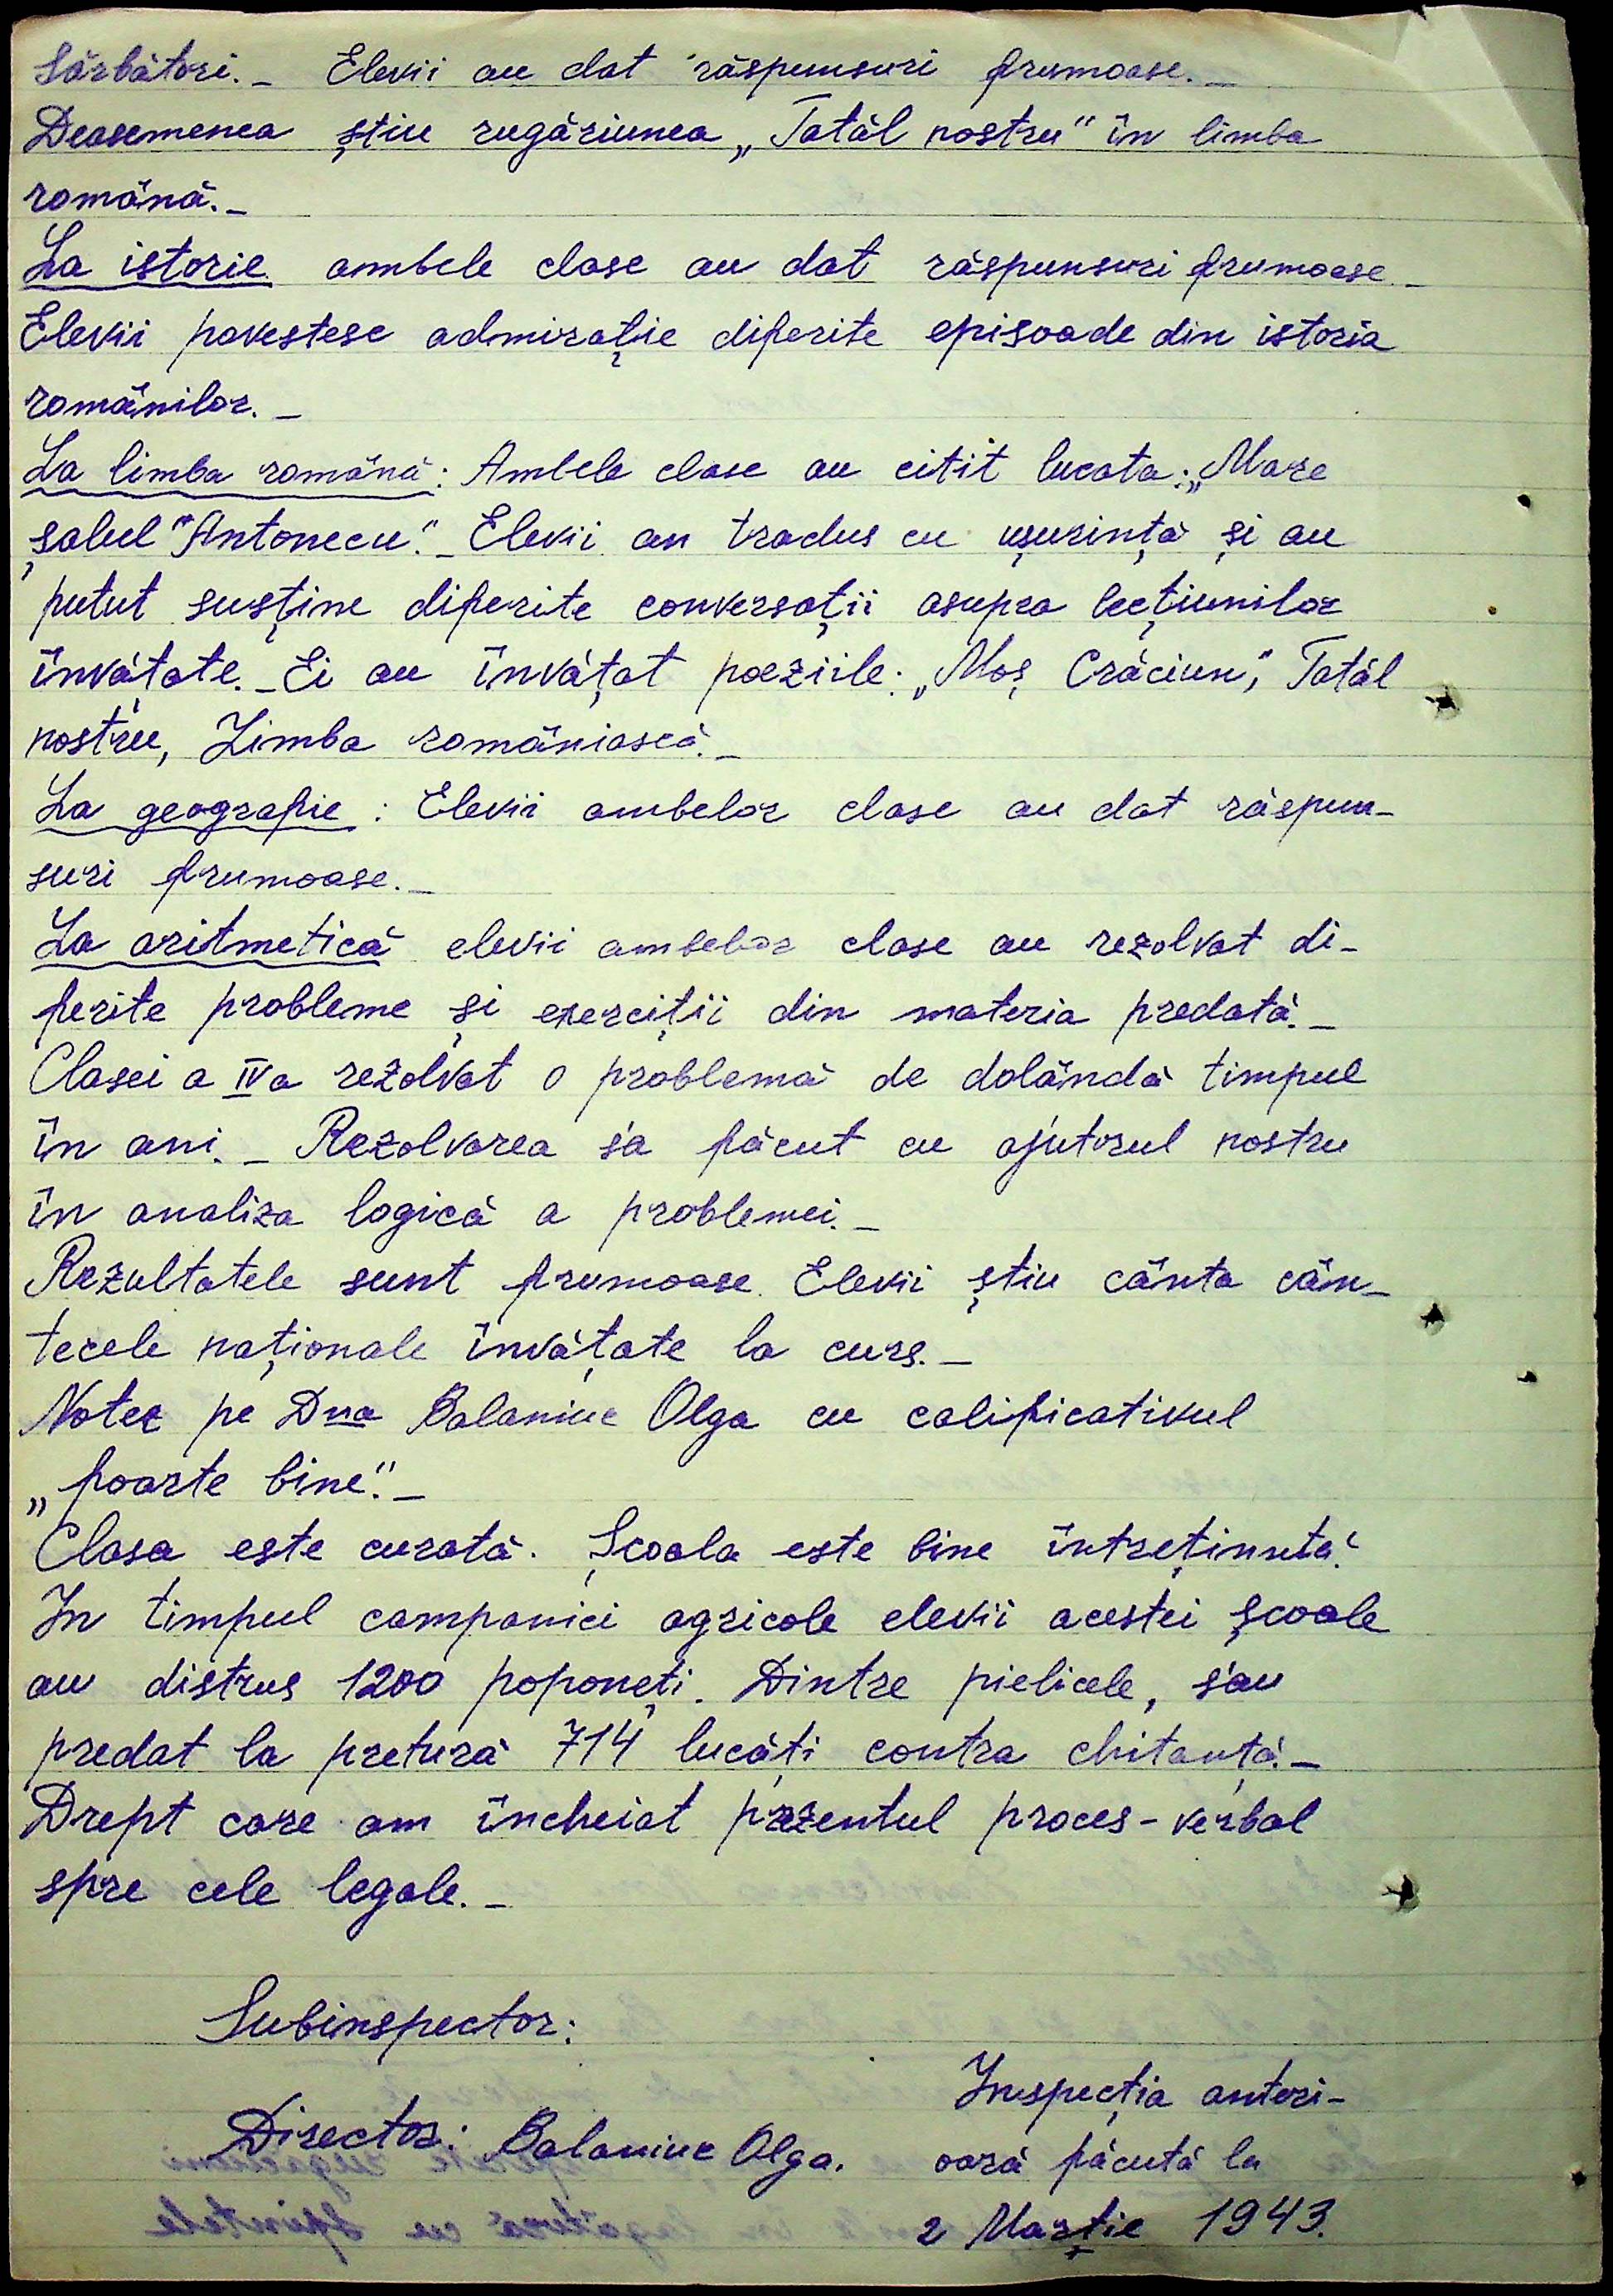 Sărbători._ Elevii au dat răspunsuri frumoase._
Deasemenea știu rugăciunea „Tatăl nostru" în limba
română._
La istorie ambele clase au dat răspunsuri frumoase._
Elevii povestesc admirație diferite episoade din istoria
românilor._
La limba română: Ambele clase au citit bucata: „Mare
șalul "Antonecu"._ Elevii au tradus cu ușurință și au
putut susține diferite conversații asupra lecțiunilor
învățate._ Ei au învățat poeziile: „Moș Crăciun", Tatăl
nostru, Limba româniască._
La geografie: Elevii ambelor clase au dat răspun-
suri frumoase._
La aritmetică elevii ambelor clase au rezolvat di-
ferite probleme și exerciții din materia predată._
Clasei a IV a rezolvat o problemă de dolândă timpul
în ani._ Rezolvarea s'a făcut cu ajutorul nostru
în analiza logică a problemei._
Rezultatele sunt frumoase. Elevii știu cânta cân-
tecele naționale învățate la curs._
Notez pe Dna Balaniuc Olga cu calificativul
„foarte bine"._
Clasa este curată. Școala este bine întreținută.
In timpul campaniei agricole elevii acestei școale
au distrus 1200 poponeți. Dintre pielicele, s'au
predat la pretură 714 bucăți contra chitanță._
Drept care am încheiat prezentul proces-verbal
spre cele legale._
Subinspector:
Director: Balaniuc Olga.
Inspecția anteri-
oară făcută la
2 Marție 1943.